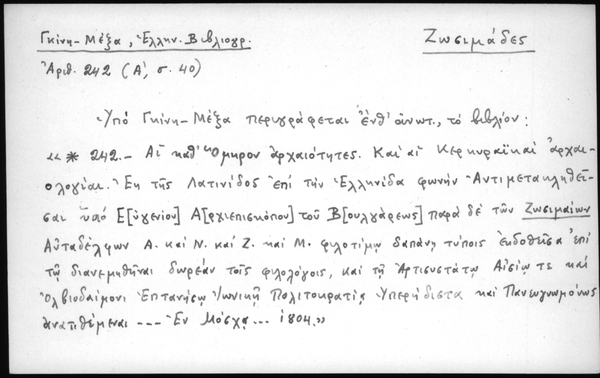 Γκίνη-Μέξα, Ἑλλην. Βιβλιογρ.
Ζωσιμάδες
Ἀριθ. 242 (Α', σ. 40)
Ὑπό Γκίνη-Μέξα περιγράφεται ἔνθ' ἀνωτ., τό βιβλίον:
«* 242.- Αἱ καθ' Ὅμηρον ἀρχαιότητες. Καί αἱ Κερκυραϊκαί ἀρχαι-
ολογίαι. Ἐκ τῆς Λατινίδος ἐπί τήν Ἑλληνίδα φωνήν Ἀντιμετακληθεῖ-
σαι ὑπό Ε[ὐγενίου] Α[ρχιεπισκόπου] τοῦ Β[ουλγάρεως] παρά δέ τῶν Ζωσιμαίων
Αὐταδέλφων Α. καί Ν. καί Ζ. καί Μ. φιλοτίμῳ δαπάνῃ τύποις ἐκδοθεῖσαι ἐπί
τῷ διανεμηθῆναι δωρεάν τοῖς φιλολόγοις, καί τῇ Ἀρτισυστάτῳ Αἰσίῳ τε καί
Ὀλβιοδαίμονι Ἑπτανήσῳ Ἰωνικῇ Πολιτοκρατίᾳ Ὑπερήδιστα καί Πανευγνωμόνως
ἀνατιθέμεναι --- Ἐν Μόσχᾳ... 1804.»